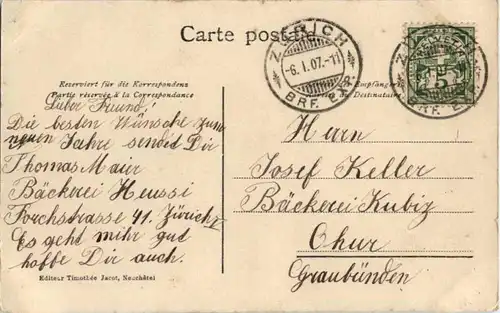 Carte postale
ZÜRICH
-6.I.07.-11
BRF. EXP.
ZÜRICH
BRF. EXP.
5
Reserviert für die Korrespondenz
Partie réservée à la Correspondance
Empfängers
Destinataire
Luber Freund!
Die besten Wünsche zum
neuen Jahre sendet Dir
Thomas Maier
Bäckerei Heussi
Forchstrasse 41. Zürich V
Es geht mihr gut
hoffe Dir auch.
Editeur Timothée Jacot, Neuchâtel
Herrn
Josef Keller
Bäckerei Kubiz
Chur
Graubünden